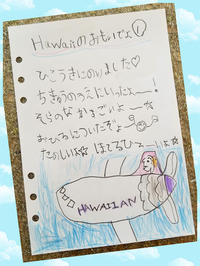 Hawaiiのおもいでよ①
ひこうきにのりました♡
ちきゅうのうえにいったよー!
そらのなかすごいよー☆
おひるについたぞよー
たのしいよ☆ほてるひろーいよ☆
HAWAIIAN